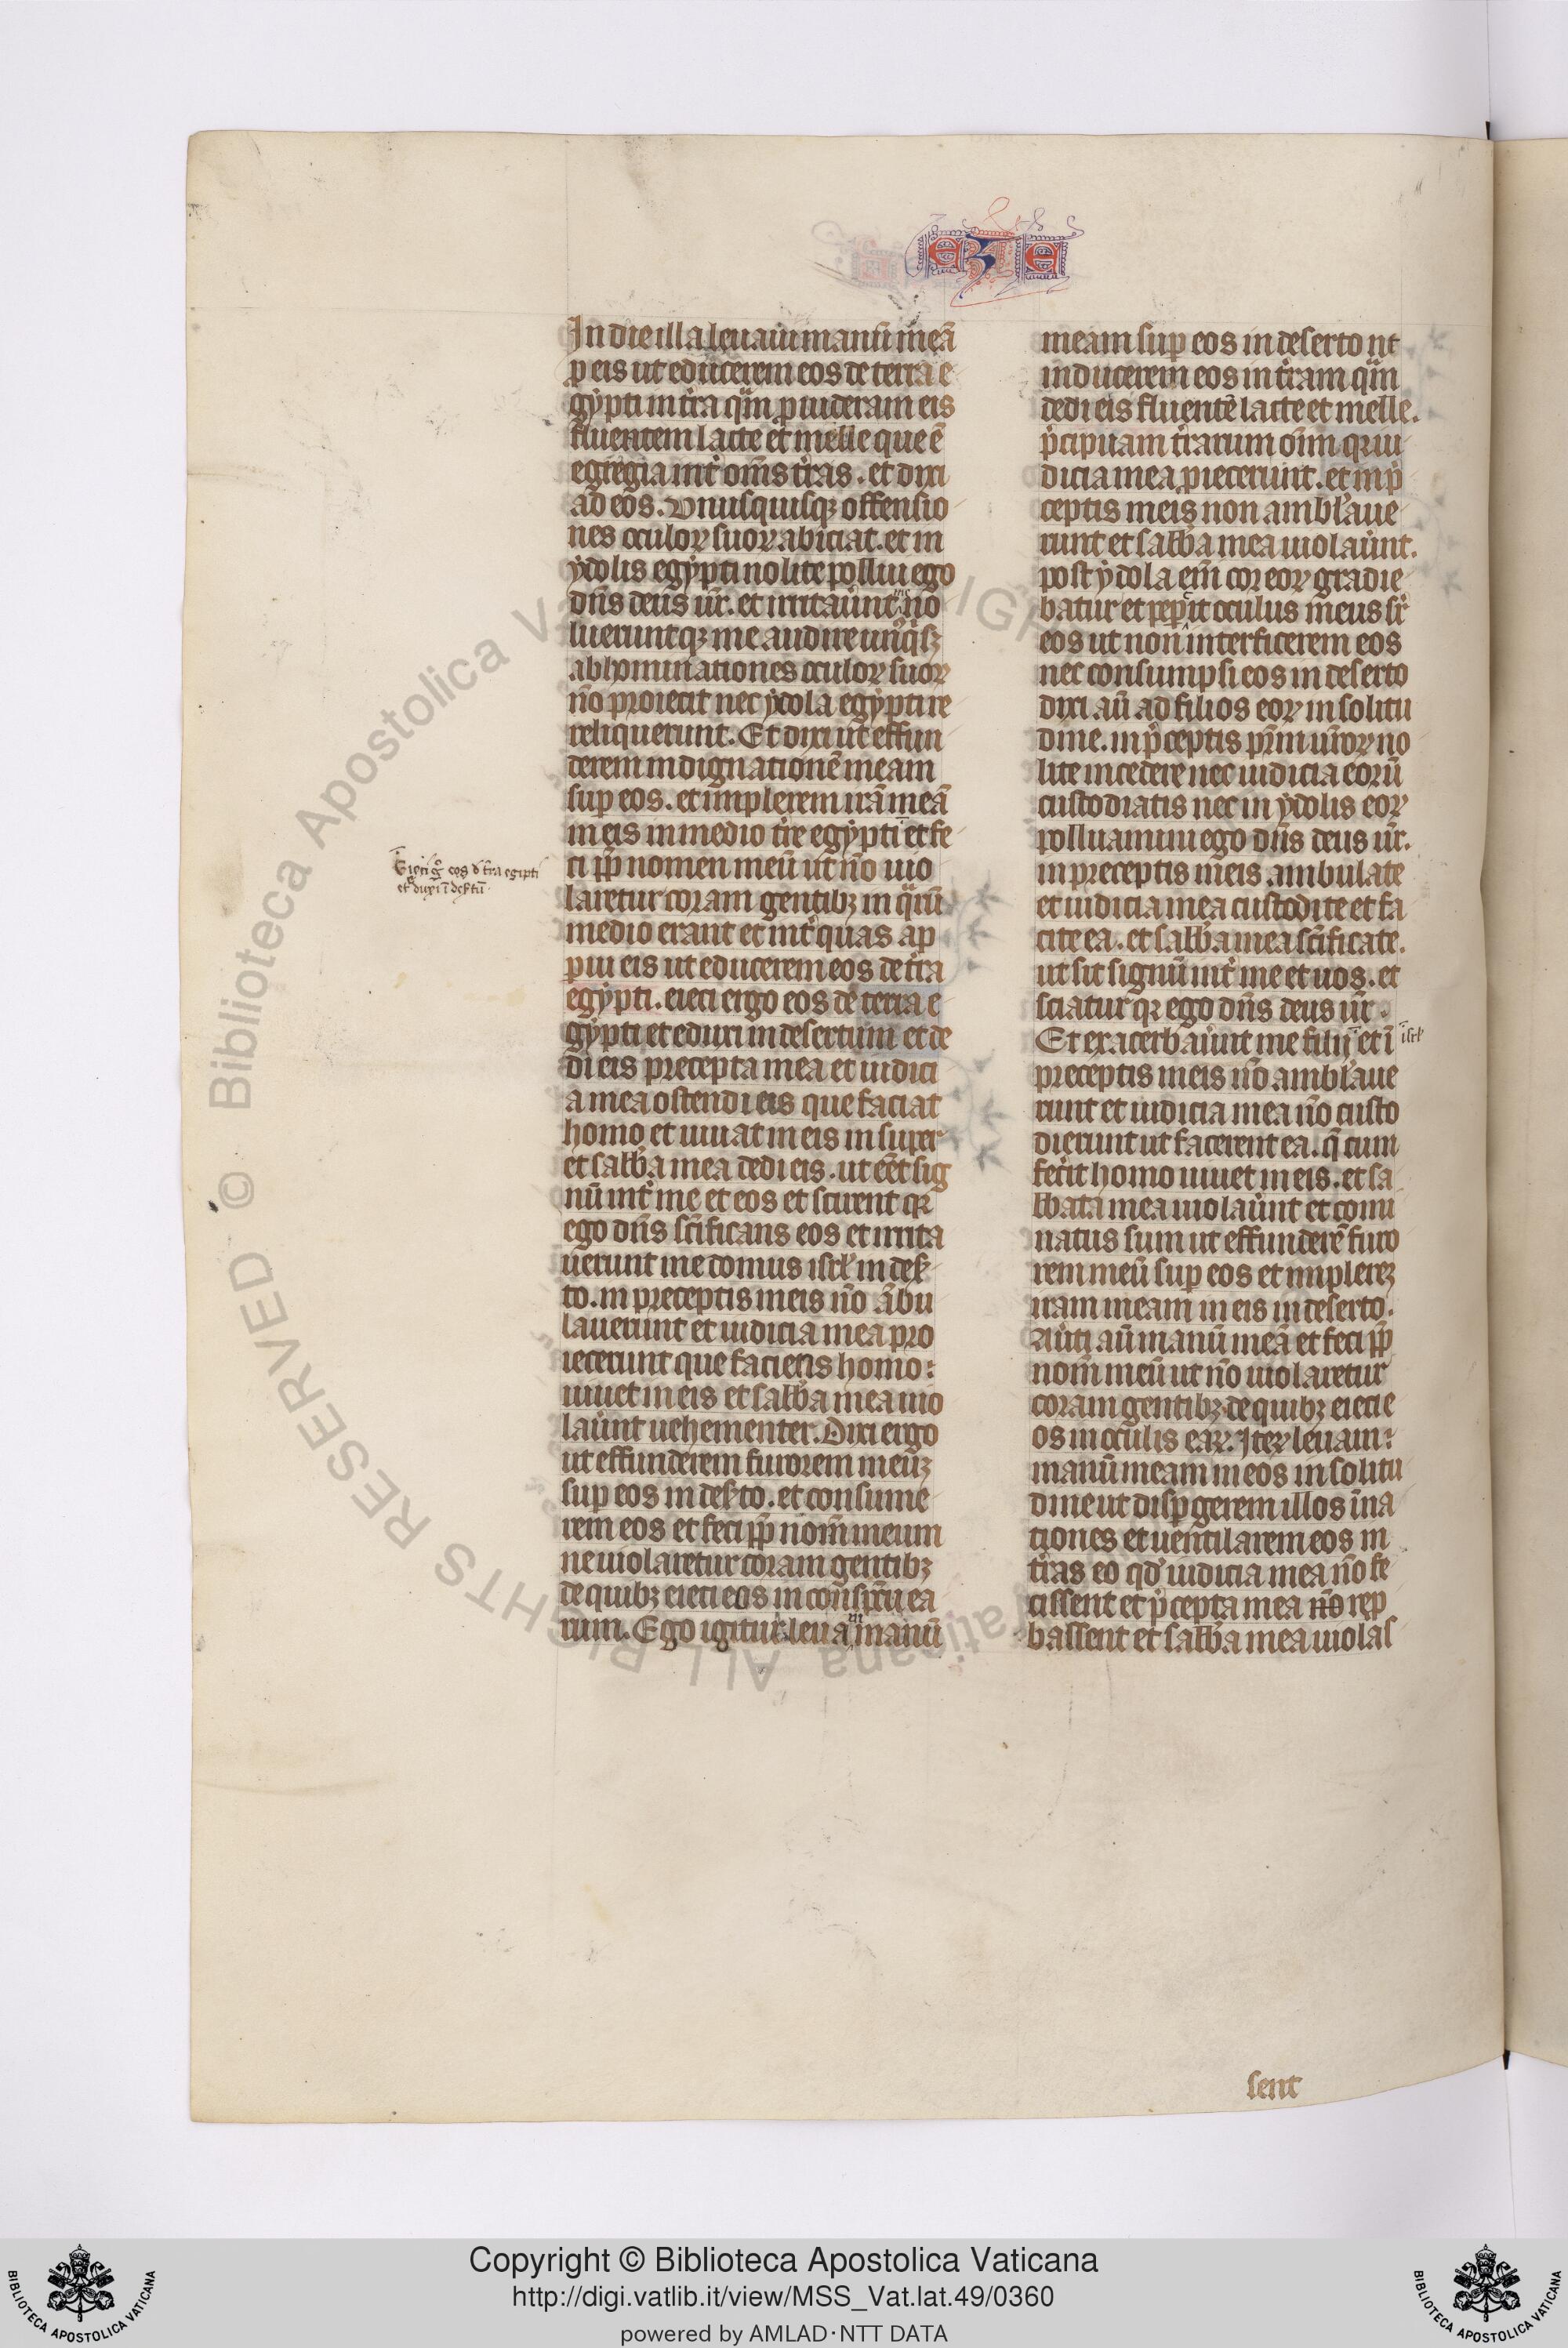 EZE
In die illa leuaui manū meā
ꝓ eis ut educerem eos de terra e
gẏpti in t̾ra qͣm ꝓuideram eis
fluentem lacte et melle que ē
egregia int̾ om̄s t̾ras . et dixi
ad eos . Vnusquisqꝫ offensio
nes oculoꝝ suoꝝ abiciat . et in
ẏdolis egẏpti nolite pollui ego
dn̄s deus ur̄ . et irritau̾unt me no
lueruntqꝫ me audire unꝰqͥsqꝫ
abhominationes oculoꝝ suoꝝ
nō proiecit nec ẏdola egẏpti re
reliquerunt . Et dixi ut effun
derem indignationē meam
sup̱ eos . et implerem irā meā
in eis in medio t̾re egẏpti et fe
ci ꝓp̄ nomen meū ut nō uio
laretur coram gentibꝫ in qͣrū
medio erant et int̾ quas ap
parui eis ut educerem eos de t̾ra
egẏpti . eieci ergo eos de terra e
gẏpti et eduxi in desertum et de
di eis precepta mea et iudici
a mea ostendi eis que faciat
homo et uiuat in eis insuper
et sabb̄a mea dedi eis . ut eēt sig
nū int̾ me et eos et scirent qꝛ
ego dn̄s sc̄ificans eos et irrita
uerunt me domus isrl̄ in des̾
to . in preceptis meis nō ābu
lauerunt et iudicia mea pro
iecerunt que faciens homo :
uiuet in eis et sabb̄a mea uio
lau̾unt uehementer . Dixi ergo
ut effunderem furorem meūꝫ
sup̱ eos in des̾to . et consume
rem eos et feci ꝓp̄ nom̄ meum
ne uiolaretur coram gentibꝫ
de quibꝫ eieci eos in conspc̄u ea
rum . Ego igitur leuaui manū
Eieci gͦ eos d̾ t̾ra egipti
et duxi ī des̾tū
meam sup̱ eos in deserto nt
inducerem eos in t̾ram qͣm
dedi eis fluentē lacte et melle .
p̾cipuam t̾rarum om̄m qꝛ iu
dicia mea ꝓiecerunt . et in p̾
ceptis meis non ambl̾aue
runt et sabb̄a mea uiolau̾unt .
post ẏdola em̄ cor eoꝝ gradie
batur et peꝑcit oculus meus sr̾
eos ut non interficerem eos
nec consumpsi eos in deserto
dixi aū ad filios eoꝝ in solitu
dine . in p̾ceptis pr̄m ur̄oꝝ no
lite incedere nec iudicia eorū
custodiatis nec in ẏdolis eoꝝ
polluamini ego dn̄s deus ur̄ .
in preceptis meis ambulate
et iudicia mea custodite et fa
cite ea . et sabb̄a mea sc̄ificate .
ut sit signū int̾ me et uos . et
sciatur qꝛ ego dn̄s deus ur̄ .
Et exacerbau̾unt me filii et ī isrl̄
preceptis meis nō ambl̾aue
runt et iudicia mea nō custo
dierunt ut facerent ea . q̄ cum
fec̾it homo uiuet in eis . et sa
bbata mea uiolau̾unt et comi
natus sum ut effunderē furo
rem meū sup̱ eos et implereꝫ
iram meam in eis in deserto .
Au̾ti aū manū meā et feci ꝓp̄
nom̄ meū ut nō uiolaretur
coram gentibꝫ de quibꝫ eieci e
os in oculis eaꝝ . Iteꝝ leuaui :
manū meam in eos in solitu
dine ut disꝑgerem illos ī na
tiones et uentilarem eos in
t̾ras eo qd̾ iudicia mea nō fe
cissent et p̾cepta mea rep̱
bassent et sabb̄a mea uiolas
sent
© Biblioteca Apostolica Vaticana ALL RIGHTS RESERVED
Copyright © Biblioteca Apostolica Vaticana
http://digi.vatlib.it/view/MSS_Vat.lat.49/0360
powered by AMLAD·NTT DATA
BIBLIOTECA APOSTOLICA VATICANA
BIBLIOTECA APOSTOLICA VATICANA